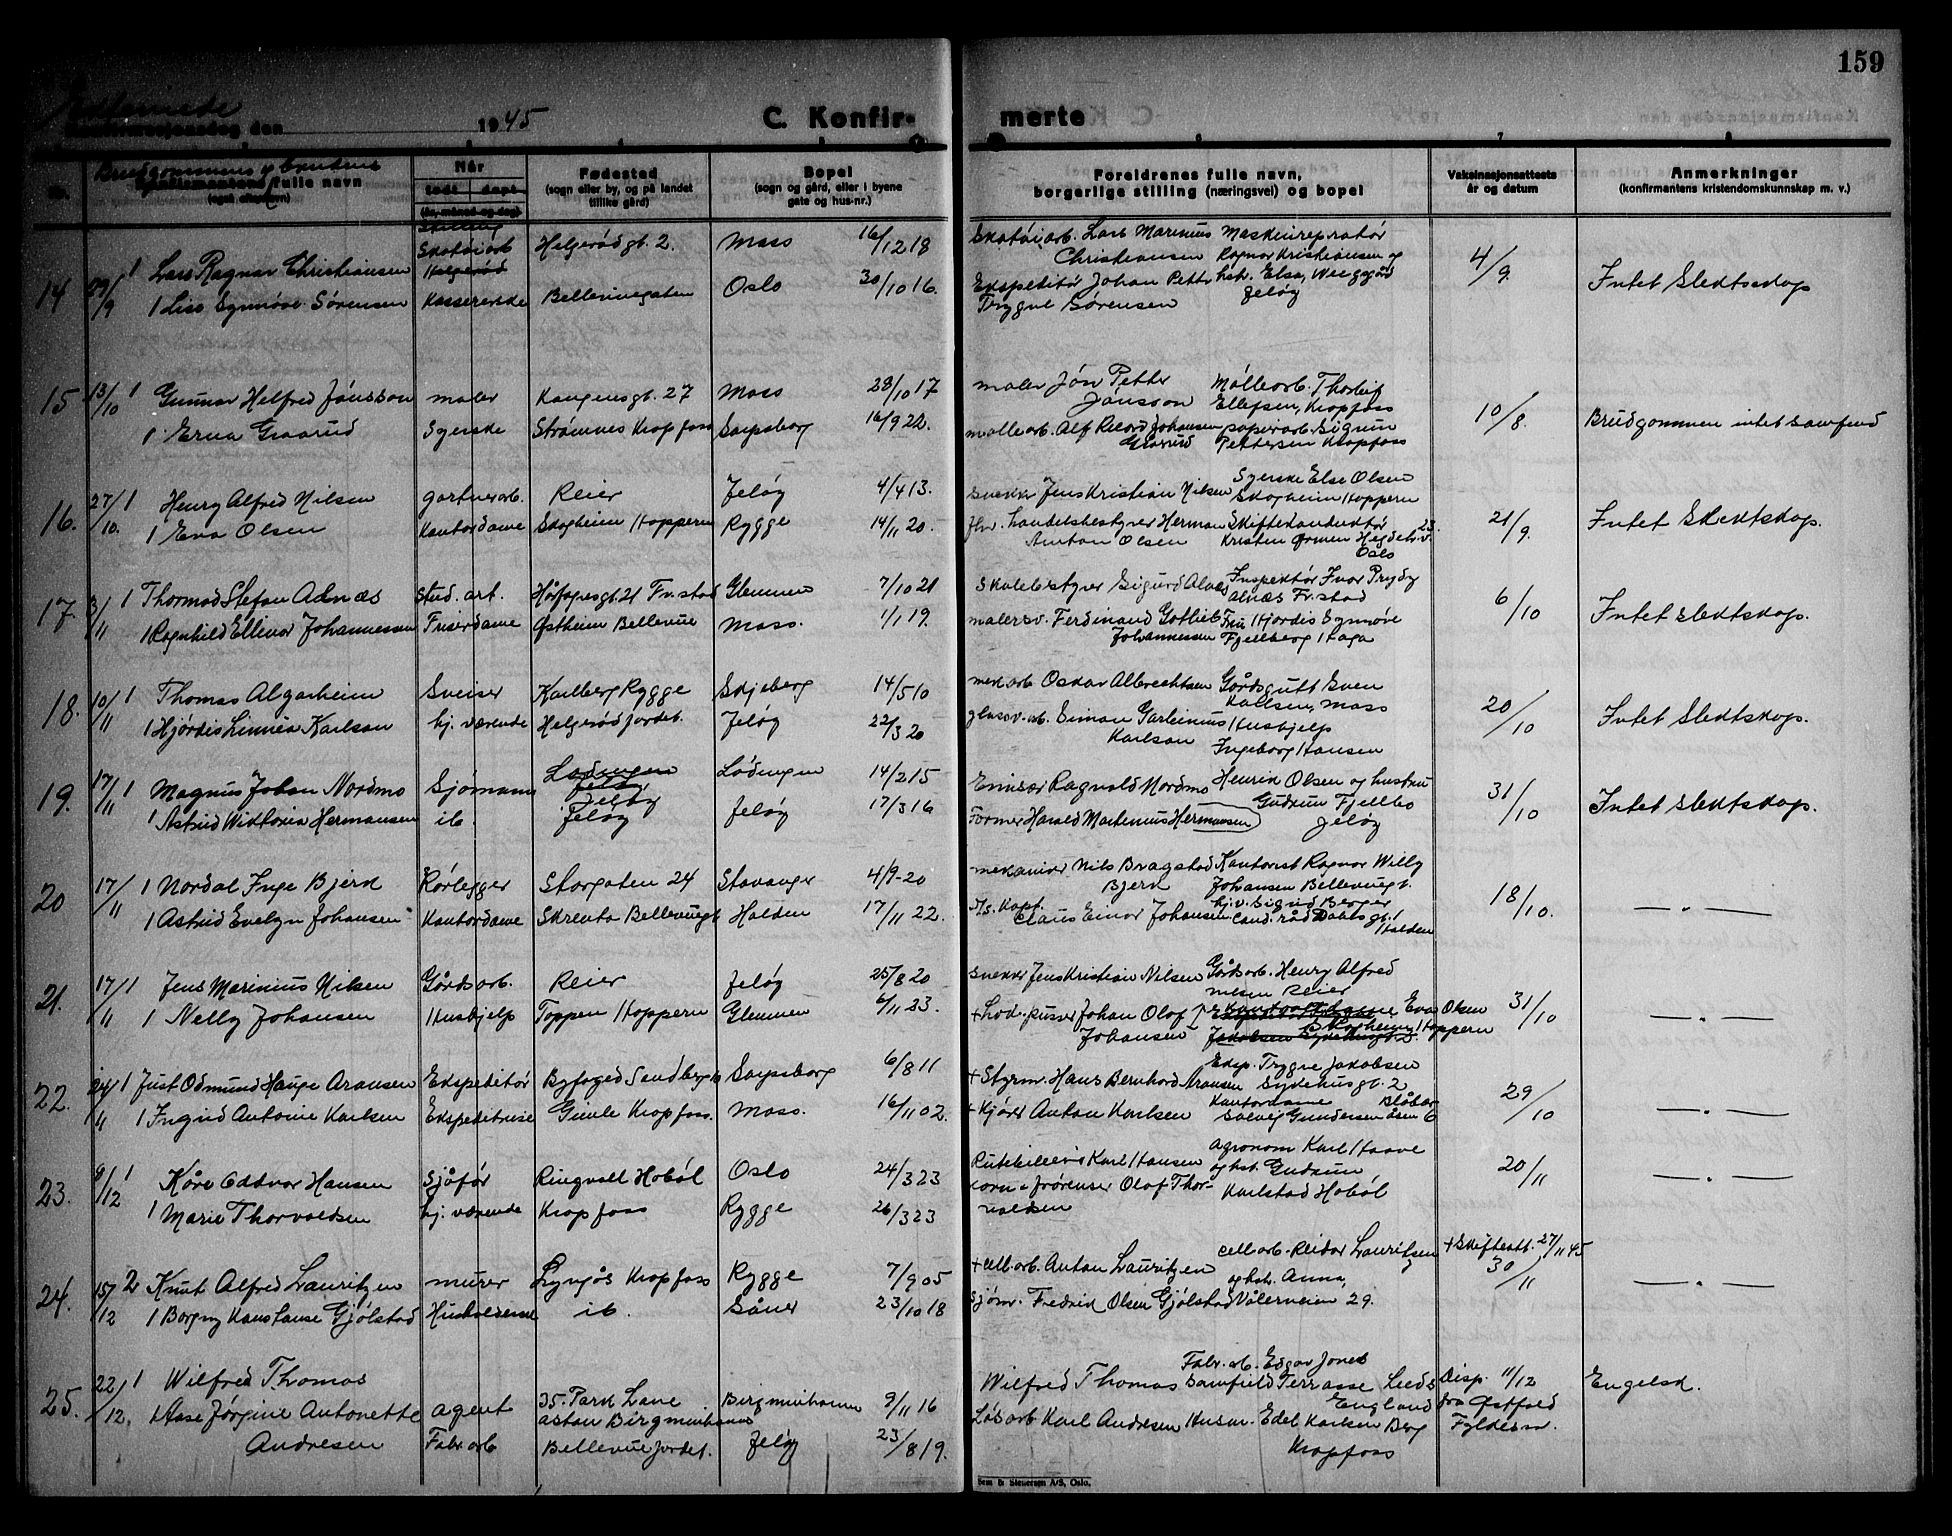 159
Edlovviede
Konfirmasjonsdag den 1945 C. Konfir- merte
Brudgommens og brudens
fulle navn
Når
født døpt
(år, måned og dag)
Stilling
Fødested
(sogn eller by, og på landet
tillike gård)
Bopel
(sogn og gård, eller i byene
gate og hus-nr.)
Foreldrenes fulle navn,
borgerlige stilling (næringsvei) og bopel
Vaksinasjonsattests
år og datum
Anmerkninger
(konfirmantens kristendomskunnskap m. v.)
14 29/9 1 Lars Ragnar Christiansen Skotøiarb Helgerødgt. 2. Moss 16/12 18 Skotøiarb. Lars Marinius Christiansen Maskinreparatør Ragnar Kristiansen og 4/9 Intet Slektskap
1 Liss Synnøve Sørensen Kassererske Bellevuegaten Oslo 30/10 16. Ekspeditør Johan Petter Trygve Sørensen hst. Elsa, Wieggård Jeløy
15 13/10 1 Gunnar Helfred Jónsson maler Kongensgt. 27 Moss 28/10 17 maler Jón Petter Jónsson Møllearb. Thorleif Ellefsen, Kropfoss 10/8. Brudgommen intet samfund
1 Erna Graarud Syerske Strømnes Kropfoss Sarpsborg 16/9 22. mollearb. Alf Ricard Johansen Graarud papirarb. Sigrun Pettersen Kropfoss
16. 27/10. 1 Henry Alfred Nilsen gartnerarb. Reier Jeløy 4/4 13. Snekker Jens Kristian Nilsen Syerske Else Olsen Skogheim Hoppern 21/9. Intet Slektskap.
1 Eva Olsen Kontordame Skogheim Hoppern Rygge 14/11 20. fhv. handelsbestyrer Herman Anton Olsen Kristen Ormen Hegdeh.v. 23. Oslo
17. 3/11 1 Thormod Stefan Alnæs Stud. art. Hårfagresgt. 21 Fr.stad Glemmen 7/10 21 Skolebestyrer Sigurd Alnæs Inspektør Ivar Prydz Alnæs Fr.stad 6/10 Intet slektskap.
1 Ragnhild Ellinor Johannessen Friserdame Østheim Bellevue Moss. 1/1 19. malersv. Ferdinand Gotlieb Johannessen Fru Hjordis Synnøve Fjellberg Haga
18. 10/11 1 Thomas Algarheim Sveiser Karlberg Rygge Skjeberg 14/5 10 mek arb Oskar Albrechtsen Gårdsgutt Sven Karlsen, Moss 20/10 Intet Slektskap.
1 Hjørdis Linnea Karlson hj. værende Helgerødjordet. Jeløy 22/3 20 glassv. arb. Simon Garleinius Karlson Hushjelp Ingeborg Hansen
19. 17/11 1 Magnus Johan Nordmo Sjømann Jeløy Lødingen 14/2 15 Emisær Ragnvald Nordmo Henrik Olsen og hustru Gudrun Fjellbo Jeløy 31/10 Intet slektskap.
1 Astrid Wiktoria Hermansen ib. Jeløy Jeløy 17/3 16 Former Harald Martinius Hermansen
20 17/11 1 Nordal Inge Bjerk Rørlegger Storgaten 24 Stavanger 4/9-20 mekaniker Nils Bragstad Bjerk Kontorist Ragnar Willy Johansen Bellevuegt. 18/10. — " —
1 Astrid Evelyn Johansen Kontordame Skrenta Bellevuegt Halden 17/11 22. Claus Einar Johansen hj.v. Sigrid Berger Halden
21. 17/11 1 Jens Marinius Nilsen Gårdsarb. Reier Jeløy 25/8 20 Snekker Jens Kristian Nilsen Gårdsarb. Henry Alfred Nilsen Reier 31/10 — " —
1 Nelly Johansen Hushjelp Toppen Hoppern Glemmen 6/11 23. Johan Olof Johansen Eva Olsen Skogheim Hoppern
22. 24/11 1 Just Odmund Hauge Aronsen Ekspeditør Byfoged Sandbergs Sarpsborg 6/8 11 + Styrm. Hans Bernhard Aronsen Eksp. Trygve Jakobsen Sykehusgt. 2 29/10 — " —
1 Ingrid Antonie Karlsen Ekspeditrise Gimle Kropfoss. Moss. 16/11 02. + Kjører Anton Karlsen Kontordame Solveig Gundersen Blåbæråsen 6
23. 9/12 1 Kåre Oddvar Hansen Sjåfør Ringvoll Hobøl Oslo 24/3 23 Rutebileier Karl Hansen Agronom Karl Haave og hst. Gudrun 20/11 — " —
1 Marie Thorvaldsen hj. værende Kropfoss Rygge 26/3 23 Olaf Thorvaldsen Karlstad Hobøl
24. 15/12 2 Knut Alfred Lauritzen murer Kropfoss Rygge 7/9 05 + cell.arb. Anton Lauritzen cell.arb. Reidar Lauritzen og hst. Anna, Vålerveien 29. + Skifteatt. 27/11 45 30/11 — " —
1 Borgny Konstanse Gjølstad Husholderske ib. Såner 23/10 18 Sjøm. Fredrik Olsen Gjølstad
25. 22/12. 1 Wilfred Thomas agent 35. Park Lane Aston Birgminhams Birgminham 9/11 16 Wilfred Thomas Fabr. arb. Edgar Jones Bamfield Terrasse Leeds England Disp. 11/12 fra Østfold Fyldesm. Engelsk.
1 Åsse Jørgine Antonette Andresen Fabr. arb Bellevuejordet. Jeløy 23/8 19. Løsarb Karl Andresen Husm. Edel Karlsen Berg Kropfoss
Sem & Stenersen A/S, Oslo.